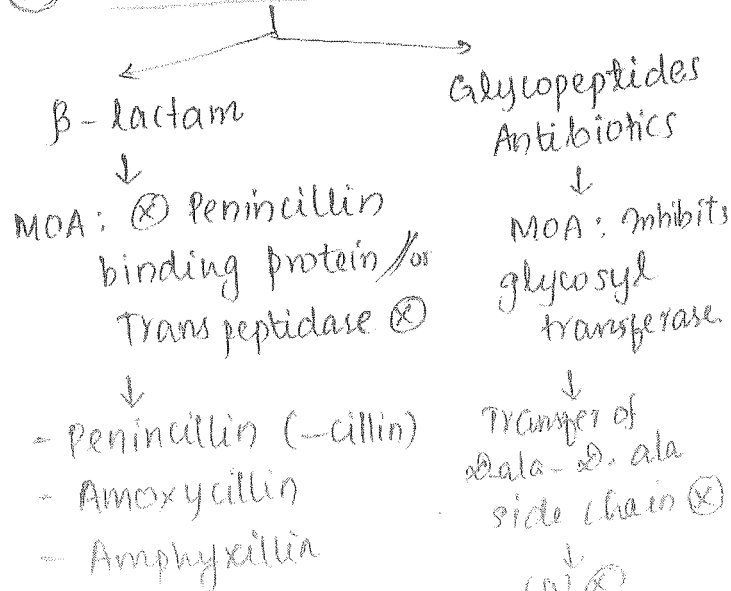 β - lactam
MOA: ⓧ Penincillin
binding protein/or
Trans peptidase ⓧ
- Penincillin (-cillin)
- Amoxycillin
- Amphyxillin
Glycopeptides
Antibiotics
MOA: Inhibits
glycosyl
transferase.
Transfer of
D.ala - D. ala
side chain ⓧ